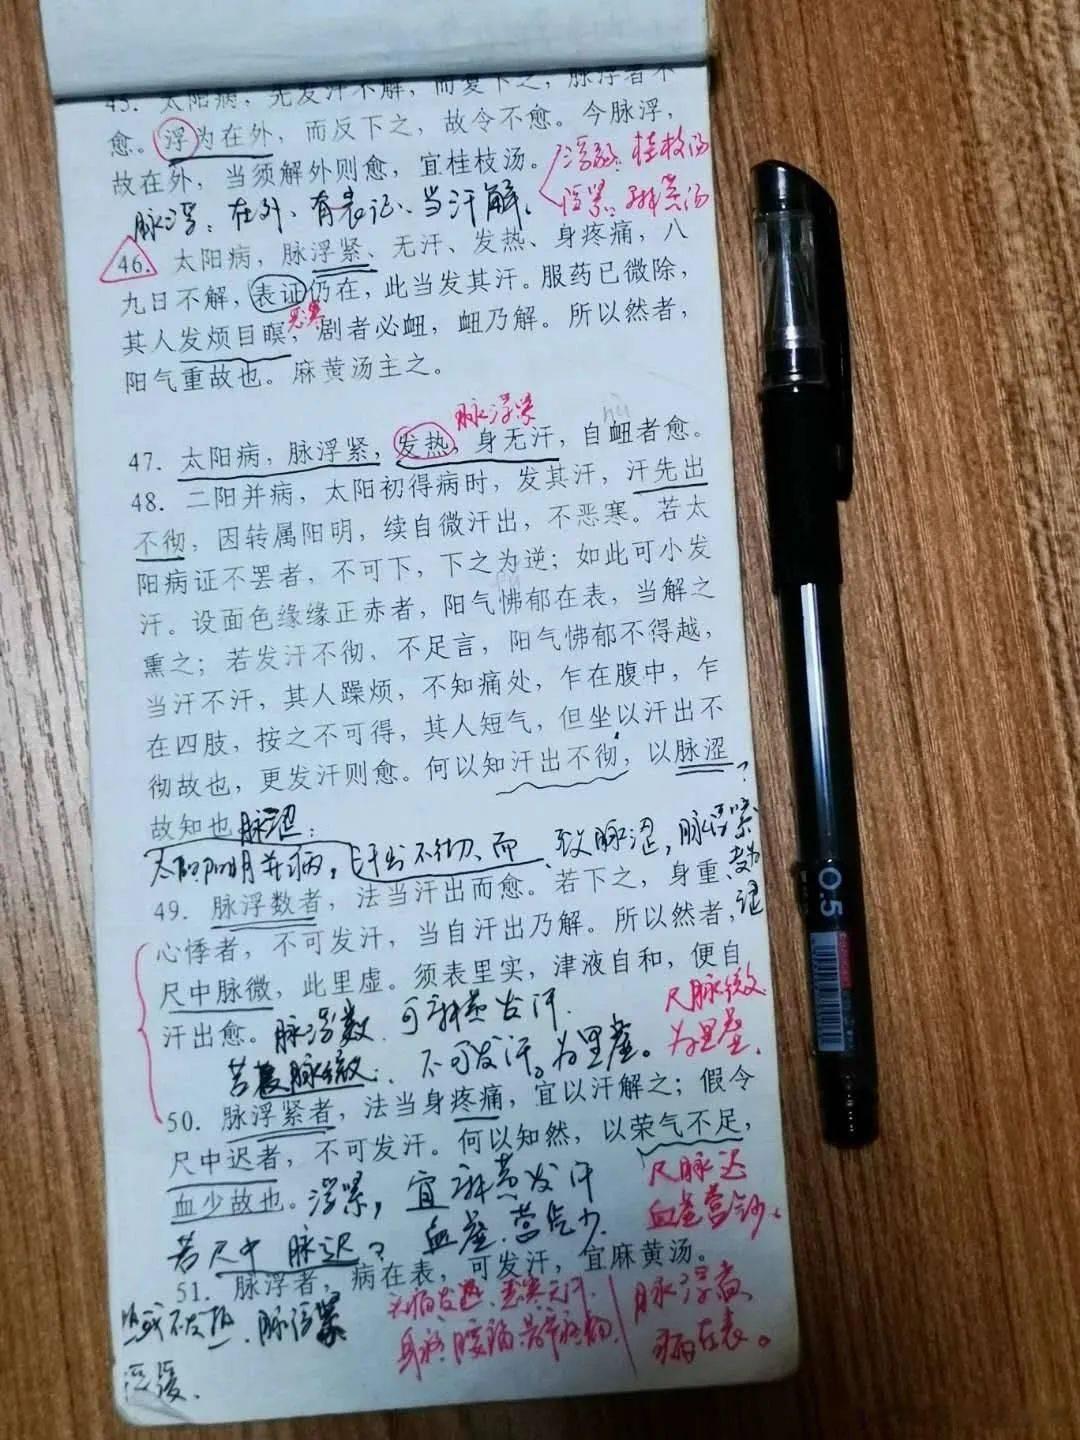 45. 太阳病，先发汗不解，而复下之，脉浮者不
愈。浮为在外，而反下之，故令不愈。今脉浮，
故在外，当须解外则愈，宜桂枝汤。
浮缓：桂枝汤
浮紧：麻黄汤
脉浮：在外、有表证、当汗解。
46. 太阳病，脉浮紧、无汗、发热、身疼痛，八
九日不解，表证仍在，此当发其汗。服药已微除，
恶寒
其人发烦目瞑，剧者必衄，衄乃解。所以然者，
阳气重故也。麻黄汤主之。
脉浮紧
nǜ
47. 太阳病，脉浮紧，发热，身无汗，自衄者愈。
48. 二阳并病，太阳初得病时，发其汗，汗先出
不彻，因转属阳明，续自微汗出，不恶寒。若太
阳病证不罢者，不可下，下之为逆；如此可小发
汗。设面色缘缘正赤者，阳气怫郁在表，当解之
熏之；若发汗不彻、不足言，阳气怫郁不得越，
当汗不汗，其人躁烦，不知痛处，乍在腹中，乍
在四肢，按之不可得，其人短气，但坐以汗出不
彻故也，更发汗则愈。何以知汗出不彻，以脉涩
故知也 脉涩：
太阳阳明并病，汗出不彻、而致脉涩，脉浮紧
49. 脉浮数者，法当汗出而愈。若下之，身重、
心悸者，不可发汗，当自汗出乃解。所以然者，
尺中脉微，此里虚。须表里实，津液自和，便自
汗出愈。脉浮数、可麻黄发汗.
尺脉微
为里虚.
脉微：不可发汗。为里虚。
50. 脉浮紧者，法当身疼痛，宜以汗解之；假令
尺中迟者，不可发汗。何以知然，以荣气不足，
血少故也。浮紧，宜麻黄发汗
尺脉迟
血虚营气少.
若尺中脉迟？血虚.营气少.
51. 脉浮者，病在表，可发汗，宜麻黄汤。
或不发热.脉浮紧
浮缓.
头痛发热、恶寒无汗.
身疼腰痛骨节疼痛
脉浮者、
病在表。
0.5